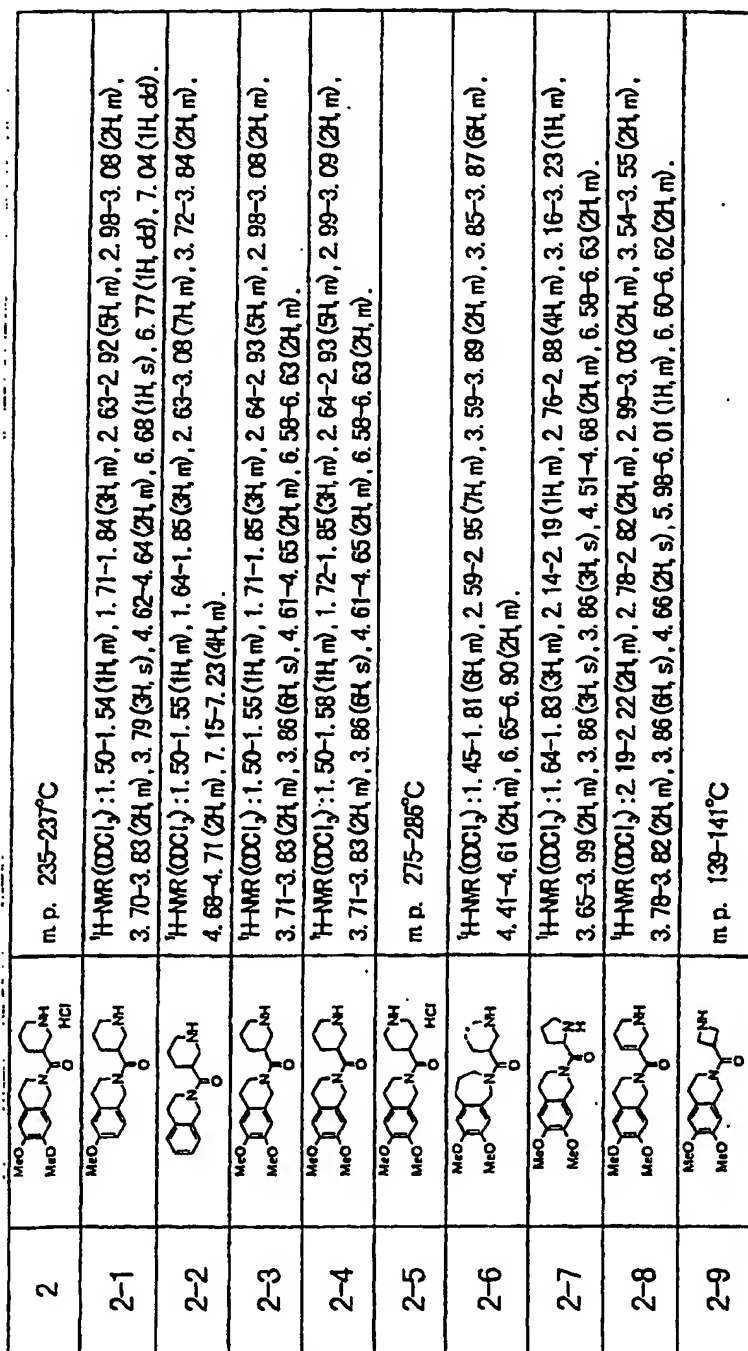 2 MeO MeO N O NH HCl m.p. 235-237°C
2-1 MeO N O NH ¹H-NMR(CDCl₃):1.50-1.54(1H,m), 1.71-1.84(3H,m), 2.63-2.92(5H,m), 2.98-3.08(2H,m),
3.70-3.83(2H,m), 3.79(3H,s), 4.62-4.64(2H,m), 6.68(1H,s), 6.77(1H,dd), 7.04(1H,dd).
2-2 N O NH ¹H-NMR(CDCl₃):1.50-1.55(1H,m), 1.64-1.85(3H,m), 2.63-3.08(7H,m), 3.72-3.84(2H,m),
4.68-4.71(2H,m), 7.15-7.23(4H,m).
2-3 MeO MeO N O NH ¹H-NMR(CDCl₃):1.50-1.55(1H,m), 1.71-1.85(3H,m), 2.64-2.93(5H,m), 2.98-3.08(2H,m),
3.71-3.83(2H,m), 3.86(6H,s), 4.61-4.65(2H,m), 6.58-6.63(2H,m).
2-4 MeO MeO N O NH ¹H-NMR(CDCl₃):1.50-1.58(1H,m), 1.72-1.85(3H,m), 2.64-2.93(5H,m), 2.99-3.09(2H,m),
3.71-3.83(2H,m), 3.86(6H,s), 4.61-4.65(2H,m), 6.58-6.63(2H,m).
2-5 MeO MeO N O NH HCl m.p. 275-286°C
2-6 MeO MeO N O NH ¹H-NMR(CDCl₃):1.45-1.81(6H,m), 2.59-2.95(7H,m), 3.59-3.89(2H,m), 3.85-3.87(6H,m),
4.41-4.61(2H,m), 6.65-6.90(2H,m).
2-7 MeO MeO N O N H ¹H-NMR(CDCl₃):1.64-1.83(3H,m), 2.14-2.19(1H,m), 2.76-2.88(4H,m), 3.16-3.23(1H,m),
3.65-3.99(2H,m), 3.86(3H,s), 3.86(3H,s), 4.51-4.68(2H,m), 6.58-6.63(2H,m).
2-8 MeO MeO N O NH ¹H-NMR(CDCl₃):2.19-2.22(2H,m), 2.78-2.82(2H,m), 2.99-3.03(2H,m), 3.54-3.55(2H,m),
3.78-3.82(2H,m), 3.86(6H,s), 4.66(2H,s), 5.98-6.01(1H,m), 6.60-6.62(2H,m).
2-9 MeO MeO N O NH m.p. 139-141°C